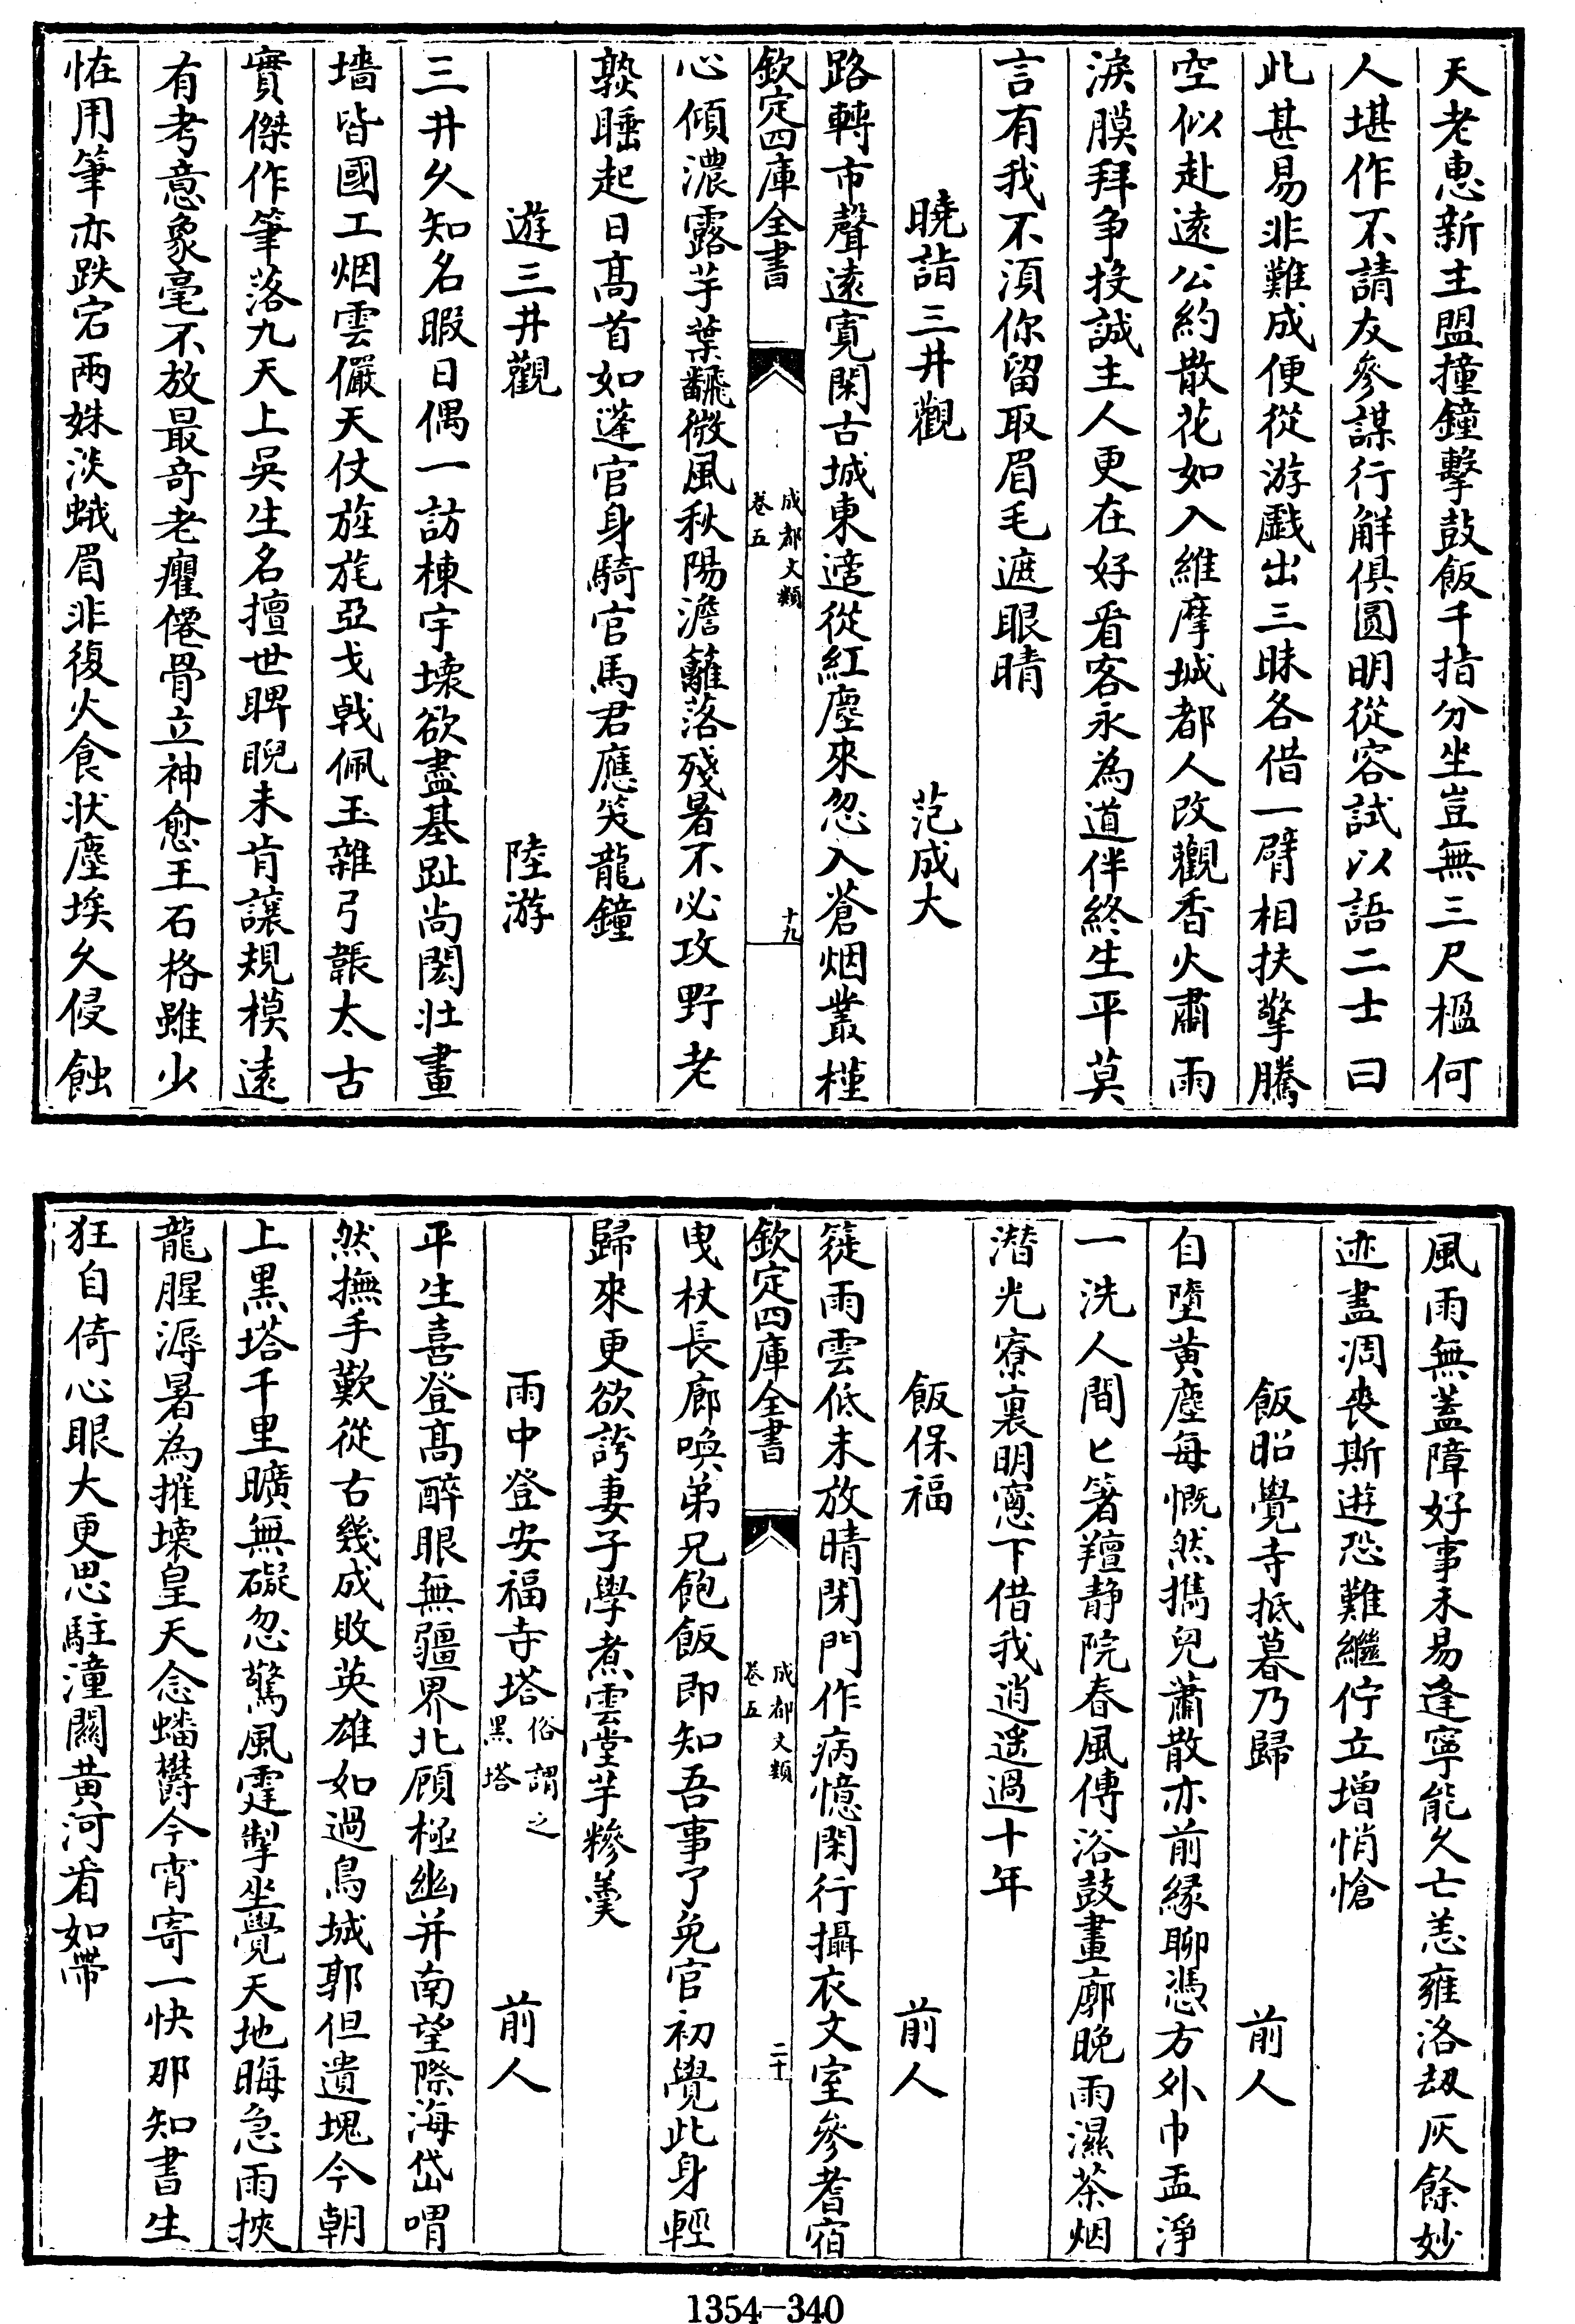 天老惠新主盟撞鐘擊鼓飯千指分坐豈無三尺楹何
人堪作不請友參謀行解俱圓明從容試以語二士曰
此甚易非難成便從游戲出三昧各借一臂相扶擎騰
空似赴逺公約散花如入維摩城都人改觀香火肅雨
淚膜拜争投誠主人更在好看客永為道伴終生平莫
言有我不湏你留取眉毛遮眼睛
曉詣三井觀 范成大
路轉市聲逺寛閑古城東適從紅塵來忽入蒼烟叢槿
欽定四庫全書 成都文類 卷五 十九
心傾濃露芋葉飜微風秋陽澹籬落殘暑不必攻野老
熟睡起日髙首如蓬官身騎官馬君應笑龍鐘
遊三井觀 陸游
三井久知名暇日偶一訪棟宇壊欲盡基趾尚閎壮畫
墻皆國工烟雲儼天仗旌旄亞戈戟佩玉雜弓韔太古
實傑作筆落九天上吳生名擅世睥睨未肯讓規模逺
有考意象毫不放最竒老癯僊骨立神愈王石格雖少
恠用筆亦跌宕兩姝淡蛾眉非復火食状塵埃久侵蝕
風雨無葢障好事未易逢寧能久亡恙雍洛刼灰餘妙
迹盡凋喪斯遊恐難繼佇立增悄愴
飯昭覺寺抵暮乃歸 前人
自墮黄塵每慨然擕兒蕭散亦前縁聊憑方外巾盂淨
一洗人間匕箸羶静院春風傳浴鼓畫廊晚雨濕茶烟
潜光寮裏明窓下借我逍遥過十年
飯保福 前人
簁雨雲低未放晴閉門作病憶閑行攝衣文室參耆宿
欽定四庫全書 成都文類 卷五 二十
曳杖長廊喚弟兄飽飯即知吾事了免官初覺此身輕
歸來更欲誇妻子學煮雲堂芋糝羹
雨中登安福寺塔 俗謂之黒塔 前人
平生喜登髙醉眼無疆界北顧極幽并南望際海岱喟
然撫手歎從古幾成敗英雄如過鳥城郭但遺塊今朝
上黒塔千里曠無礙忽驚風霆掣坐覺天地晦急雨挾
龍腥溽暑為摧壊皇天念蟠欝今宵寄一快那知書生
狂自倚心眼大更思駐潼關黄河看如帶
1354-340